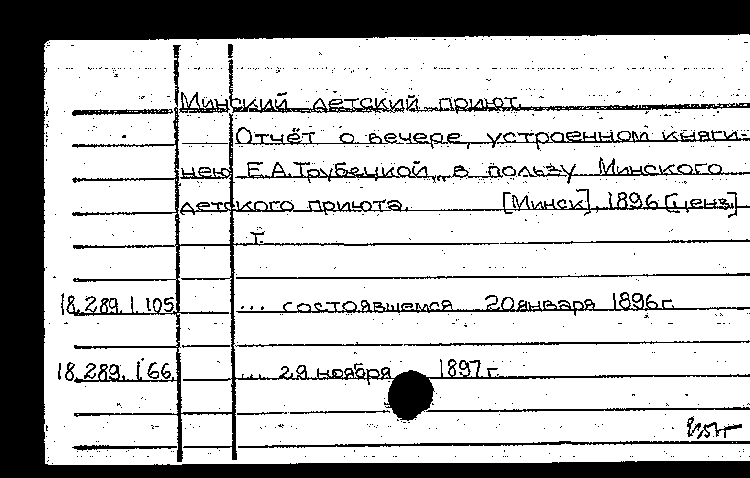 Минский детский приют.
Отчёт о вечере, устроенном княги-
нею Е.А.Трубецкой, в пользу Минского
детского приюта. [Минск], 1896 [ценз]
т.
18.289.1.105 ... состоявшемся 20 января 1896 г.
18.289.1.66. ... 29 ноября 1897 г.